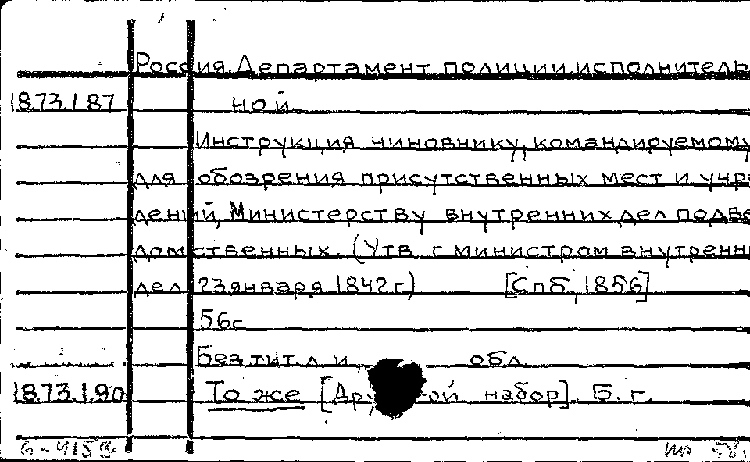 Россия. Департамент полиции исполнитель
18.73.1.87 ной.
Инструкция чиновнику, командируемому
для обозрения присутственных мест и учре
дений, Министерству внутренних дел подве
домственных. (Утв. г. министром внутренни
дел 23 января 1842 г.) [Спб, 1856]
56 с.
Без тит. л. и обл.
18.73.1.90 То же [Другой набор]. Б. г.